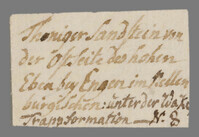 Thoniger Sandstein von
der Ostseite des hohen
Ebca bey Engen im Nellen
burgischen: unter der Wake
Transformation — N. 8